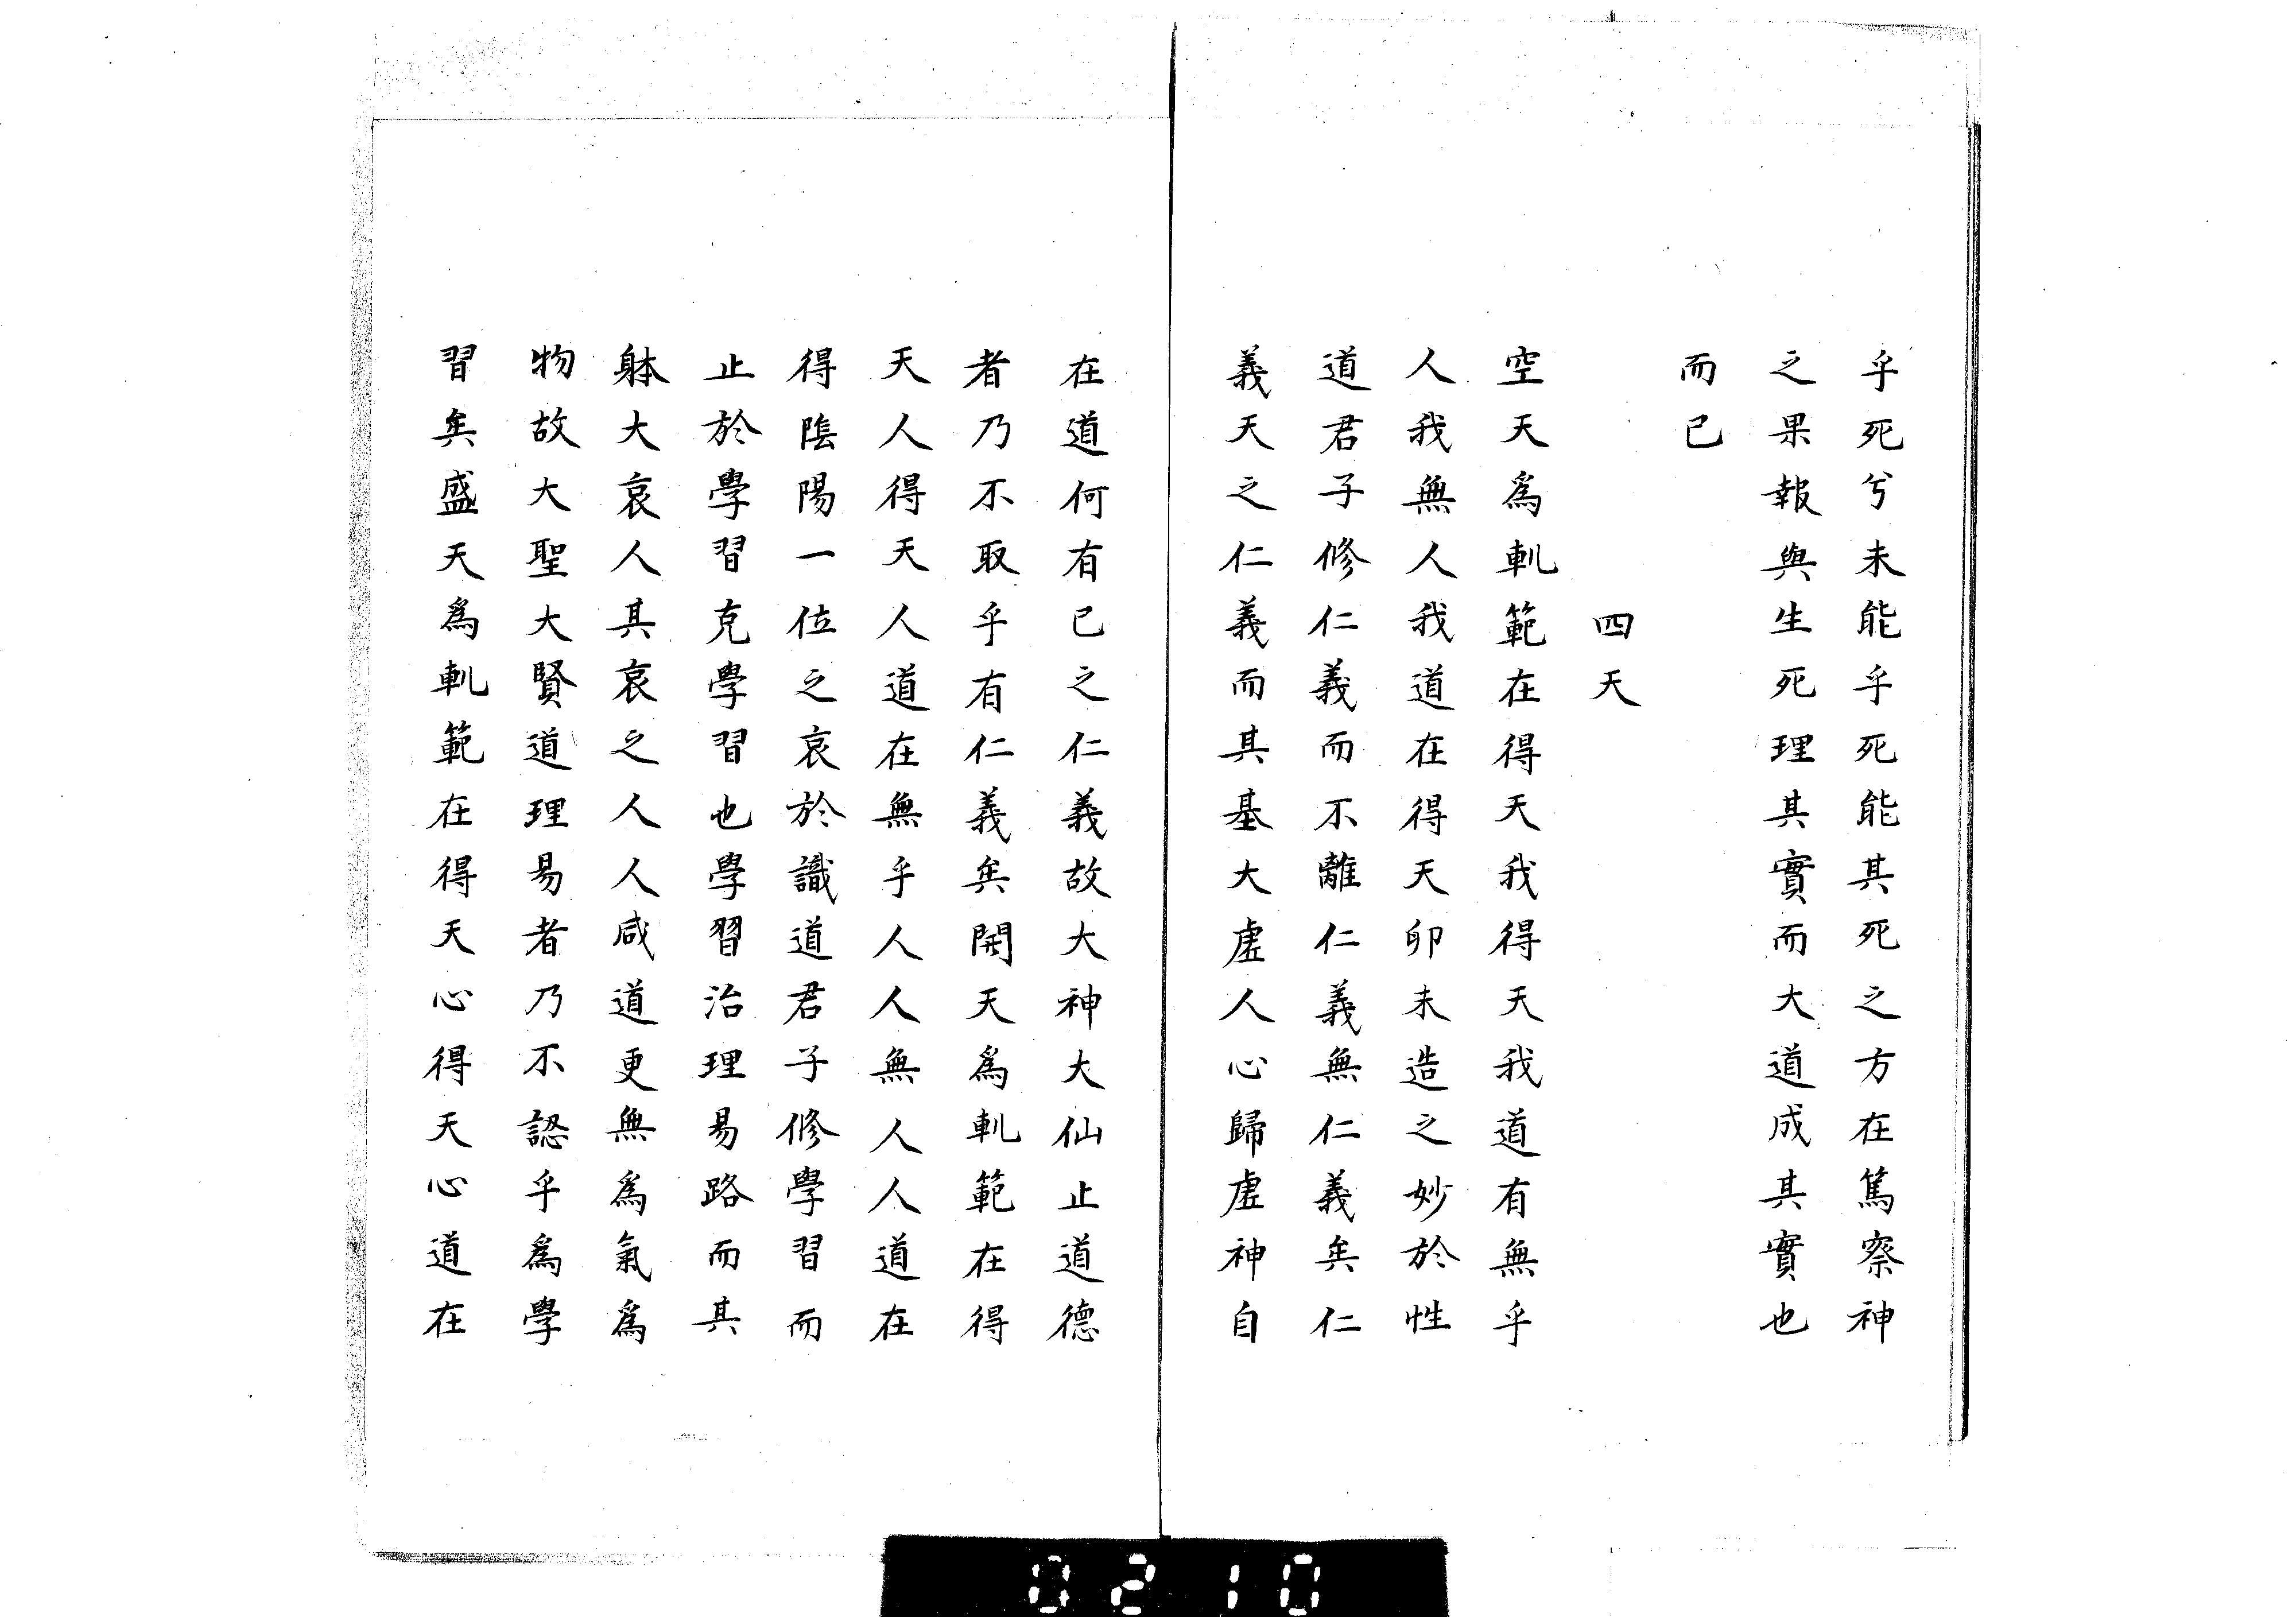 乎死兮未能乎死能其死之方在篤察神
之果報與生死理其實而大道成其實也
而已
四天
空天爲軌範在得天我得天我道有無乎
人我無人我道在得天卯未造之妙於性
道君子修仁義而不離仁義無仁義矣仁
義天之仁義而其基大虛人心歸虛神自
在道何有已之仁義故大神大仙止道德
者乃不取乎有仁義矣開天爲軌範在得
天人得天人道在無乎人人無人人道在
得陰陽一位之哀於識道君子修學習而
止於學習克學習也學習治理易路而其
躰大哀人其哀之人人咸道更無爲氣爲
物故大聖大賢道理易者乃不認乎爲學
習矣盛天爲軌範在得天心得天心道在
0210